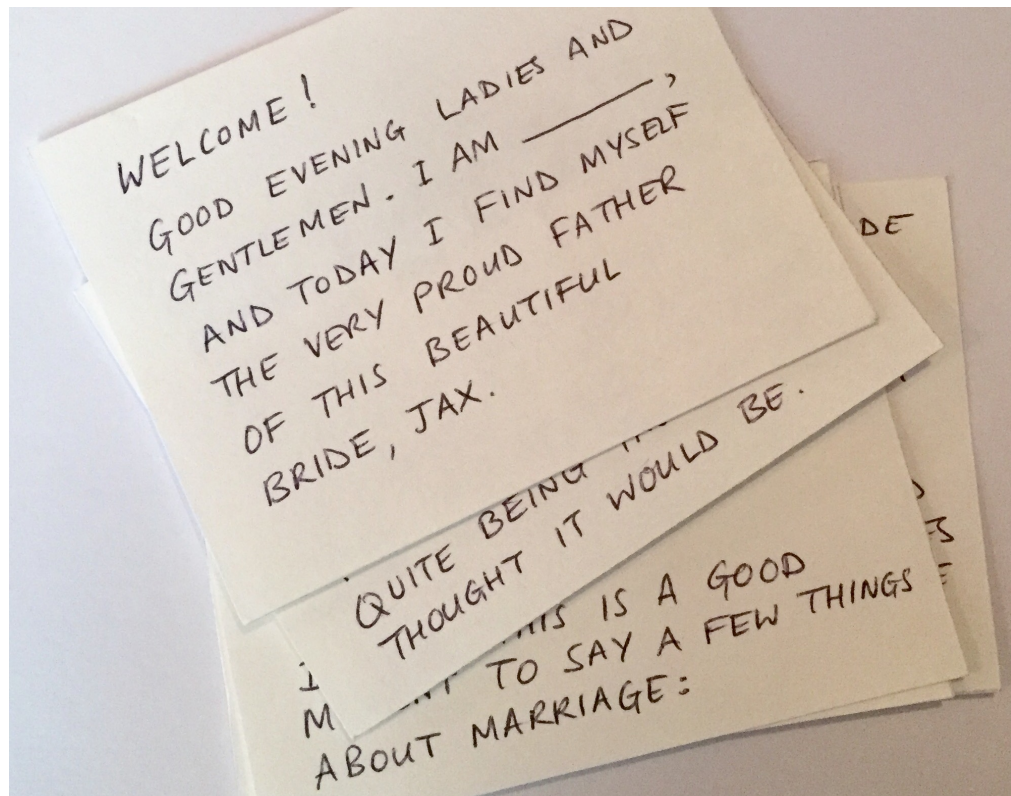 WELCOME!
GOOD EVENING LADIES AND
GENTLEMEN. I AM ______,
AND TODAY I FIND MYSELF
THE VERY PROUD FATHER
OF THIS BEAUTIFUL
BRIDE, JAX.
QUITE BEING
THOUGHT IT WOULD BE.
IS A GOOD
TO SAY A FEW THINGS
ABOUT MARRIAGE: